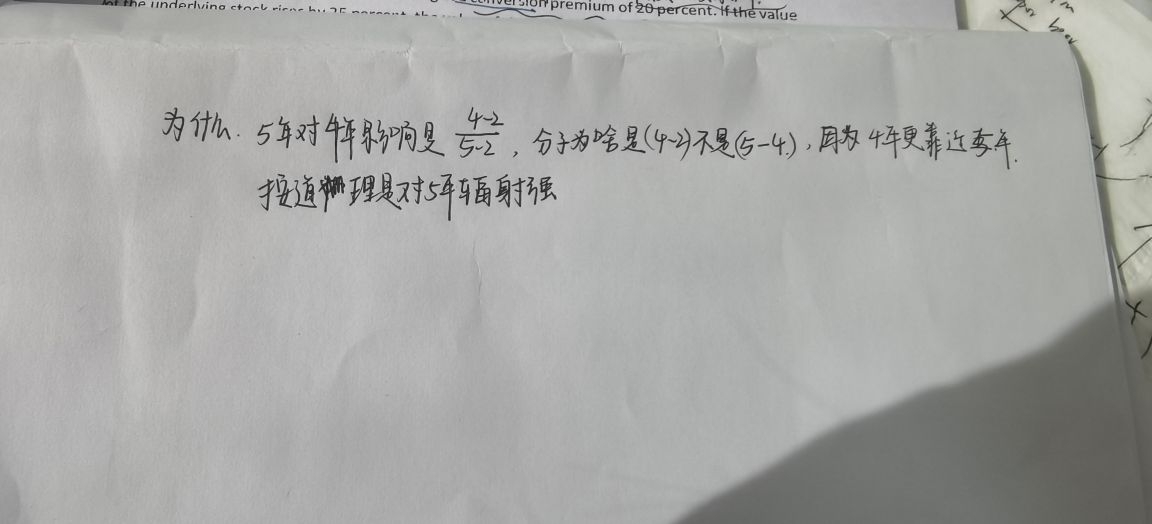 conversion premium of 20 percent. If the value
for the underlying stock rises by 25 percent, the
为什么. 5年对4年影响是 4-2/5-2, 分子为啥是(4-2)不是(5-4), 因为4年更靠近5年.
按道理是对5年辐射强